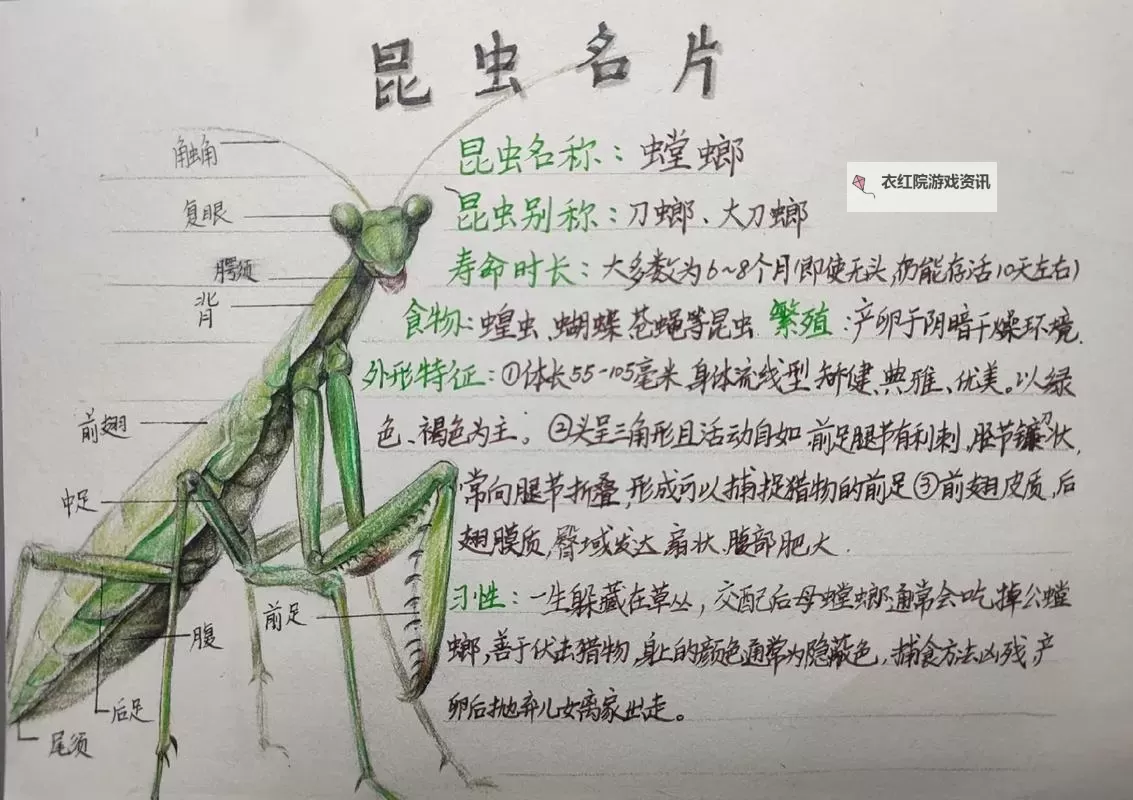 昆虫名片
触角
昆虫名称：螳螂
衣红院游戏资讯
复眼
昆虫别称：刀螂、大刀螂
腭须
寿命时长：大多数为6~8个月(即使无头,仍能存活10天左右)
背
食物：蝗虫、蝴蝶、苍蝇等昆虫 繁殖：产卵于阴暗干燥环境.
外形特征：①体长55-105毫米,身体流线型,矫健、典雅、优美。以绿
前翅
色、褐色为主。②头呈三角形且活动自如,前足腿节有利刺,胫节镰刀状,
中足
常向腿节折叠,形成可以捕捉猎物的前足③前翅皮质,后
翅膜质,臀域发达,扇状,腹部肥大.
前足
习性：一生躲藏在草丛，交配后母螳螂通常会吃掉公螳
腹
螂,善于伏击猎物,身上的颜色通常为隐蔽色,捕食方法凶残,产
后足
卵后抛弃儿女离家出走。
尾须